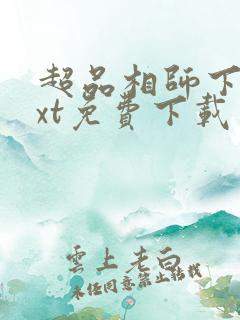 超品相師下
xt免費下載
雲上老白
未经同意禁止转载